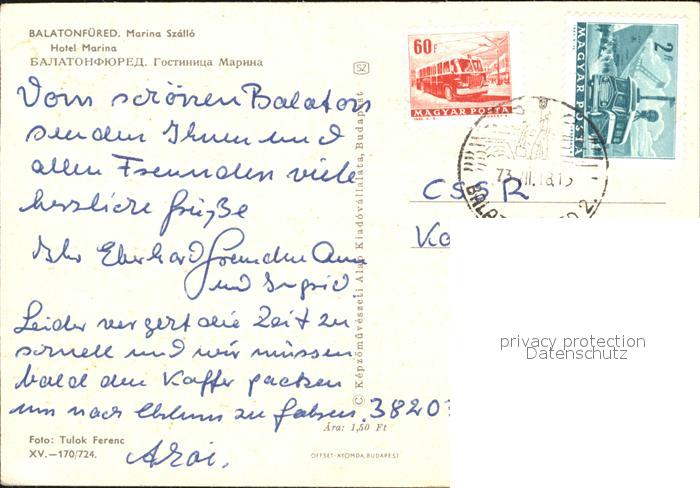 BALATONFÜRED. Marina Szálló
Hotel Marina
БАЛАТОНФЮРЕД. Гостиница Марина
Vom schönen Balaton
senden Ihnen und
allen Freunden viele
herzliche Grüße
Ihr Eberhard
und Ingrid.
Leider vergeht die Zeit zu
schnell und wir müssen
bald den Koffer packen
um nach zu fahren.
Foto: Tulok Ferenc
XV.—170/724.
SZ
© Képzőművészeti Alap Kiadóvállalata, Budapest
Ára: 1,50 Ft
OFFSET-NYOMDA, BUDAPEST
60f
MAGYAR POSTA
2 Ft
MAGYAR POSTA
73
2.
CSSR
Ko
privacy protection
Datenschutz